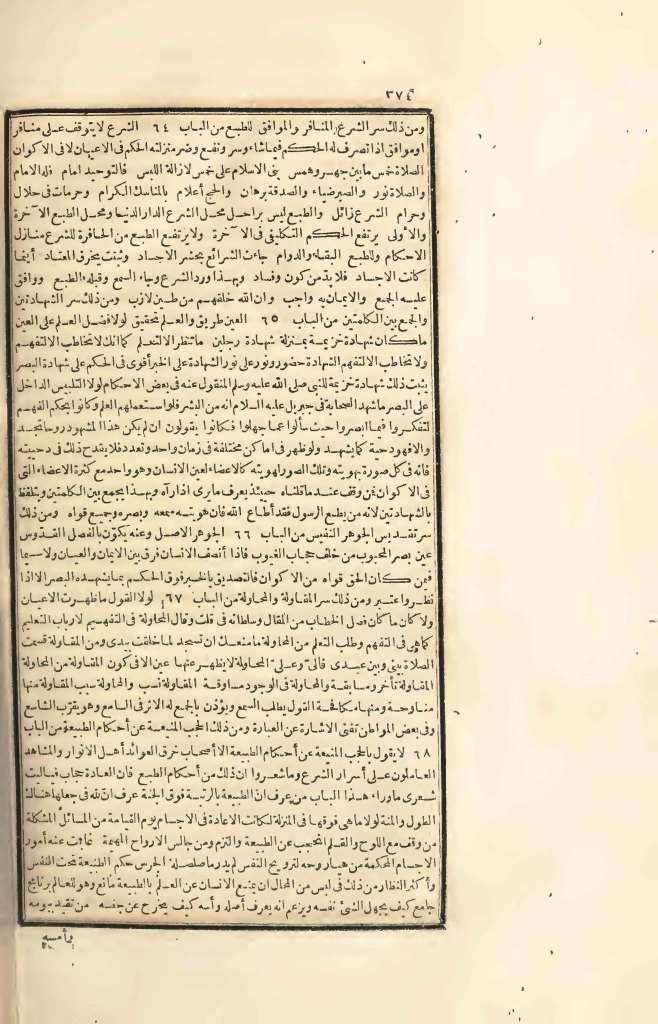 ٣٧٤
ومن ذلك سر الشرع المنافر والموافق للطبع من الباب ٦٤ الشرع لا يتوقف على منافر
أو موافق اذا تصرف له الحكم فيما شاء وسر ونفع وضر منزلته الحكم فى الاعيان لا فى الاكوان
الصلاة خمس ما بين جهر وهمس بنى الاسلام على خمس لازالة اللبس فالتوحيد امام فله الامام
والصلاة نور والصبر ضياء والصدقة برهان والحج أعلام بالمناسك الكرام وحرمات فى حلال
وحرام الشرع زائل والطبع ليس براحل محل الشرع الدار الدنيا ومحل الطبع الآخرة
والاولى يرتفع الحكم التكليفى فى الآخرة ولا يرتفع الطبع من الحافرة للشرع منازل
الاحكام وللطبع البقاء والدوام جاءت الشرائع بحشر الاجساد وثبتت بخرق المعتاد أينما
كانت الاجساد فلا بد من كون وفساد وبهذا ورد الشرع وجاء السمع وقبله الطبع ووافق
عليه الجميع والايمان به واجب وان الله خلقهم من طين لازب ومن ذلك سر الشهادتين
والجمع بين الكلمتين من الباب ٦٥ العين طريق والعلم تحقيق لولا فضل العلم على العين
ما كان شهادة خزيمة بمنزلة شهادة رجلين ما تنظر الا لتعلم كما انك لا تخاطب الا لتفهم
ولا تخاطب الا لتفهم الشهادة حضور ونور على نور الشهادة على الخبر أقوى فى الحكم على شهادة البصر
يثبت ذلك شهادة خزيمة للنبى صلى الله عليه وسلم المنقول عنه فى بعض الاحكام لولا التلبيس الداخل
على البصر ما شهد الصحابة فى جبريل عليه السلام انه من البشر فلو استعملهم العلم وكانوا بحكم الفهم
لتفكروا فيما أبصروا حيث سألوا عما جهلوا فكانوا يقولون ان لم يكن هذا المشهود روحا تجسد
والا فهو دحية كما يشهد ولو ظهر فى اماكن مختلفة فى زمان واحد وتعدد فلا يقدح ذلك فى دحيته
فانه فى كل صورة بهويته وتلك الصور لهويته كالاعضاء لعين الانسان وهو واحد مع كثرة الاعضاء التى
فى الاكوان فمن وقف عند ما قلناه حينئذ يعرف ما يرى اذا رآه وبهذا يجمع بين الكلمتين ويتلفظ
بالشهادتين لانه من يطع الرسول فقد أطاع الله فان هويته سمعه وبصره وجميع قواه ومن ذلك
سر تقديس الجوهر النفيس من الباب ٦٦ الجوهر الاصل وعنه يكون بالفصل القدوس
عين بصر المحبوب من خلف حجاب الغيوب فاذا أنصف الانسان فرق بين الايمان والعيان ولاسيما
فيمن كان الحق قواه من الاكوان فالتصديق بالخبر فوق الحكم بما يشهده البصر الا اذا
نظروا عتبر ومن ذلك سر المقاولة والمحاولة من الباب ٦٧ لولا القول ما ظهرت الاعيان
ولا كان ما كان فصل الخطاب من المقال وسلطانه فى قلت وقال المحاولة فى التفهيم لارباب التعليم
كما هى فى التفهم وطلب التعلم من المحاولة ما منعك ان تسجد لما خلقت بيدى ومن المقاولة قسمت
الصلاة بينى وبين عبدى فالى وعلى المحاولة لا يظهر عنها عين الا فى كون المقاولة من المحاولة
المقاولة تأخر ومسابقة والمحاولة فى الوجود مساوقة المقاولة نسب والمحاولة سبب المقاولة منها
مناوحة ومنها مكافحة القول يطلب السمع ويؤذن بالجمع له الاثر فى السامع وهو يقرب الشاسع
وفى بعض المواطن تغنى الاشارة عن العبارة ومن ذلك الحجب المنيعة عن أحكام الطبيعة من الباب
٦٨ لا يقول بالحجب المنيعة عن أحكام الطبيعة الا أصحاب خرق العوائد أهل الانوار والمشاهد
العاملون على أسرار الشرع وما شعروا ان ذلك من أحكام الطبع فان العادة حجاب فياليت
شعرى ما وراء هذا الباب من يعرف ان الطبيعة بالرتبة فوق الجنة عرف ان لله فى جعلها هنالك
الطول والمنة لولا ما هى فوقها فى المنزلة لكانت الاعادة فى الاجسام يوم القيامة من المسائل المشكلة
من وقف مع اللوح والقلم انحجب عن الطبيعة والتزم ومن جالس الارواح المهيمة غابت عنه أمور
الاجسام المحكمة من هبا روحه لترويح النفس لم يدر ما صلصلة الجرس حكم الطبيعة تحت النفس
وأكثر النظار من ذلك فى لبس من المحال ان يمنع الانسان عن العلم بالطبيعة مانع وهو للعالم برنامج
جامع كيف يجهل الشئ نفسه ويزعم انه يعرف أصله وأسه كيف يخرج عن جنسه من تقيد بيومه
وأمسه